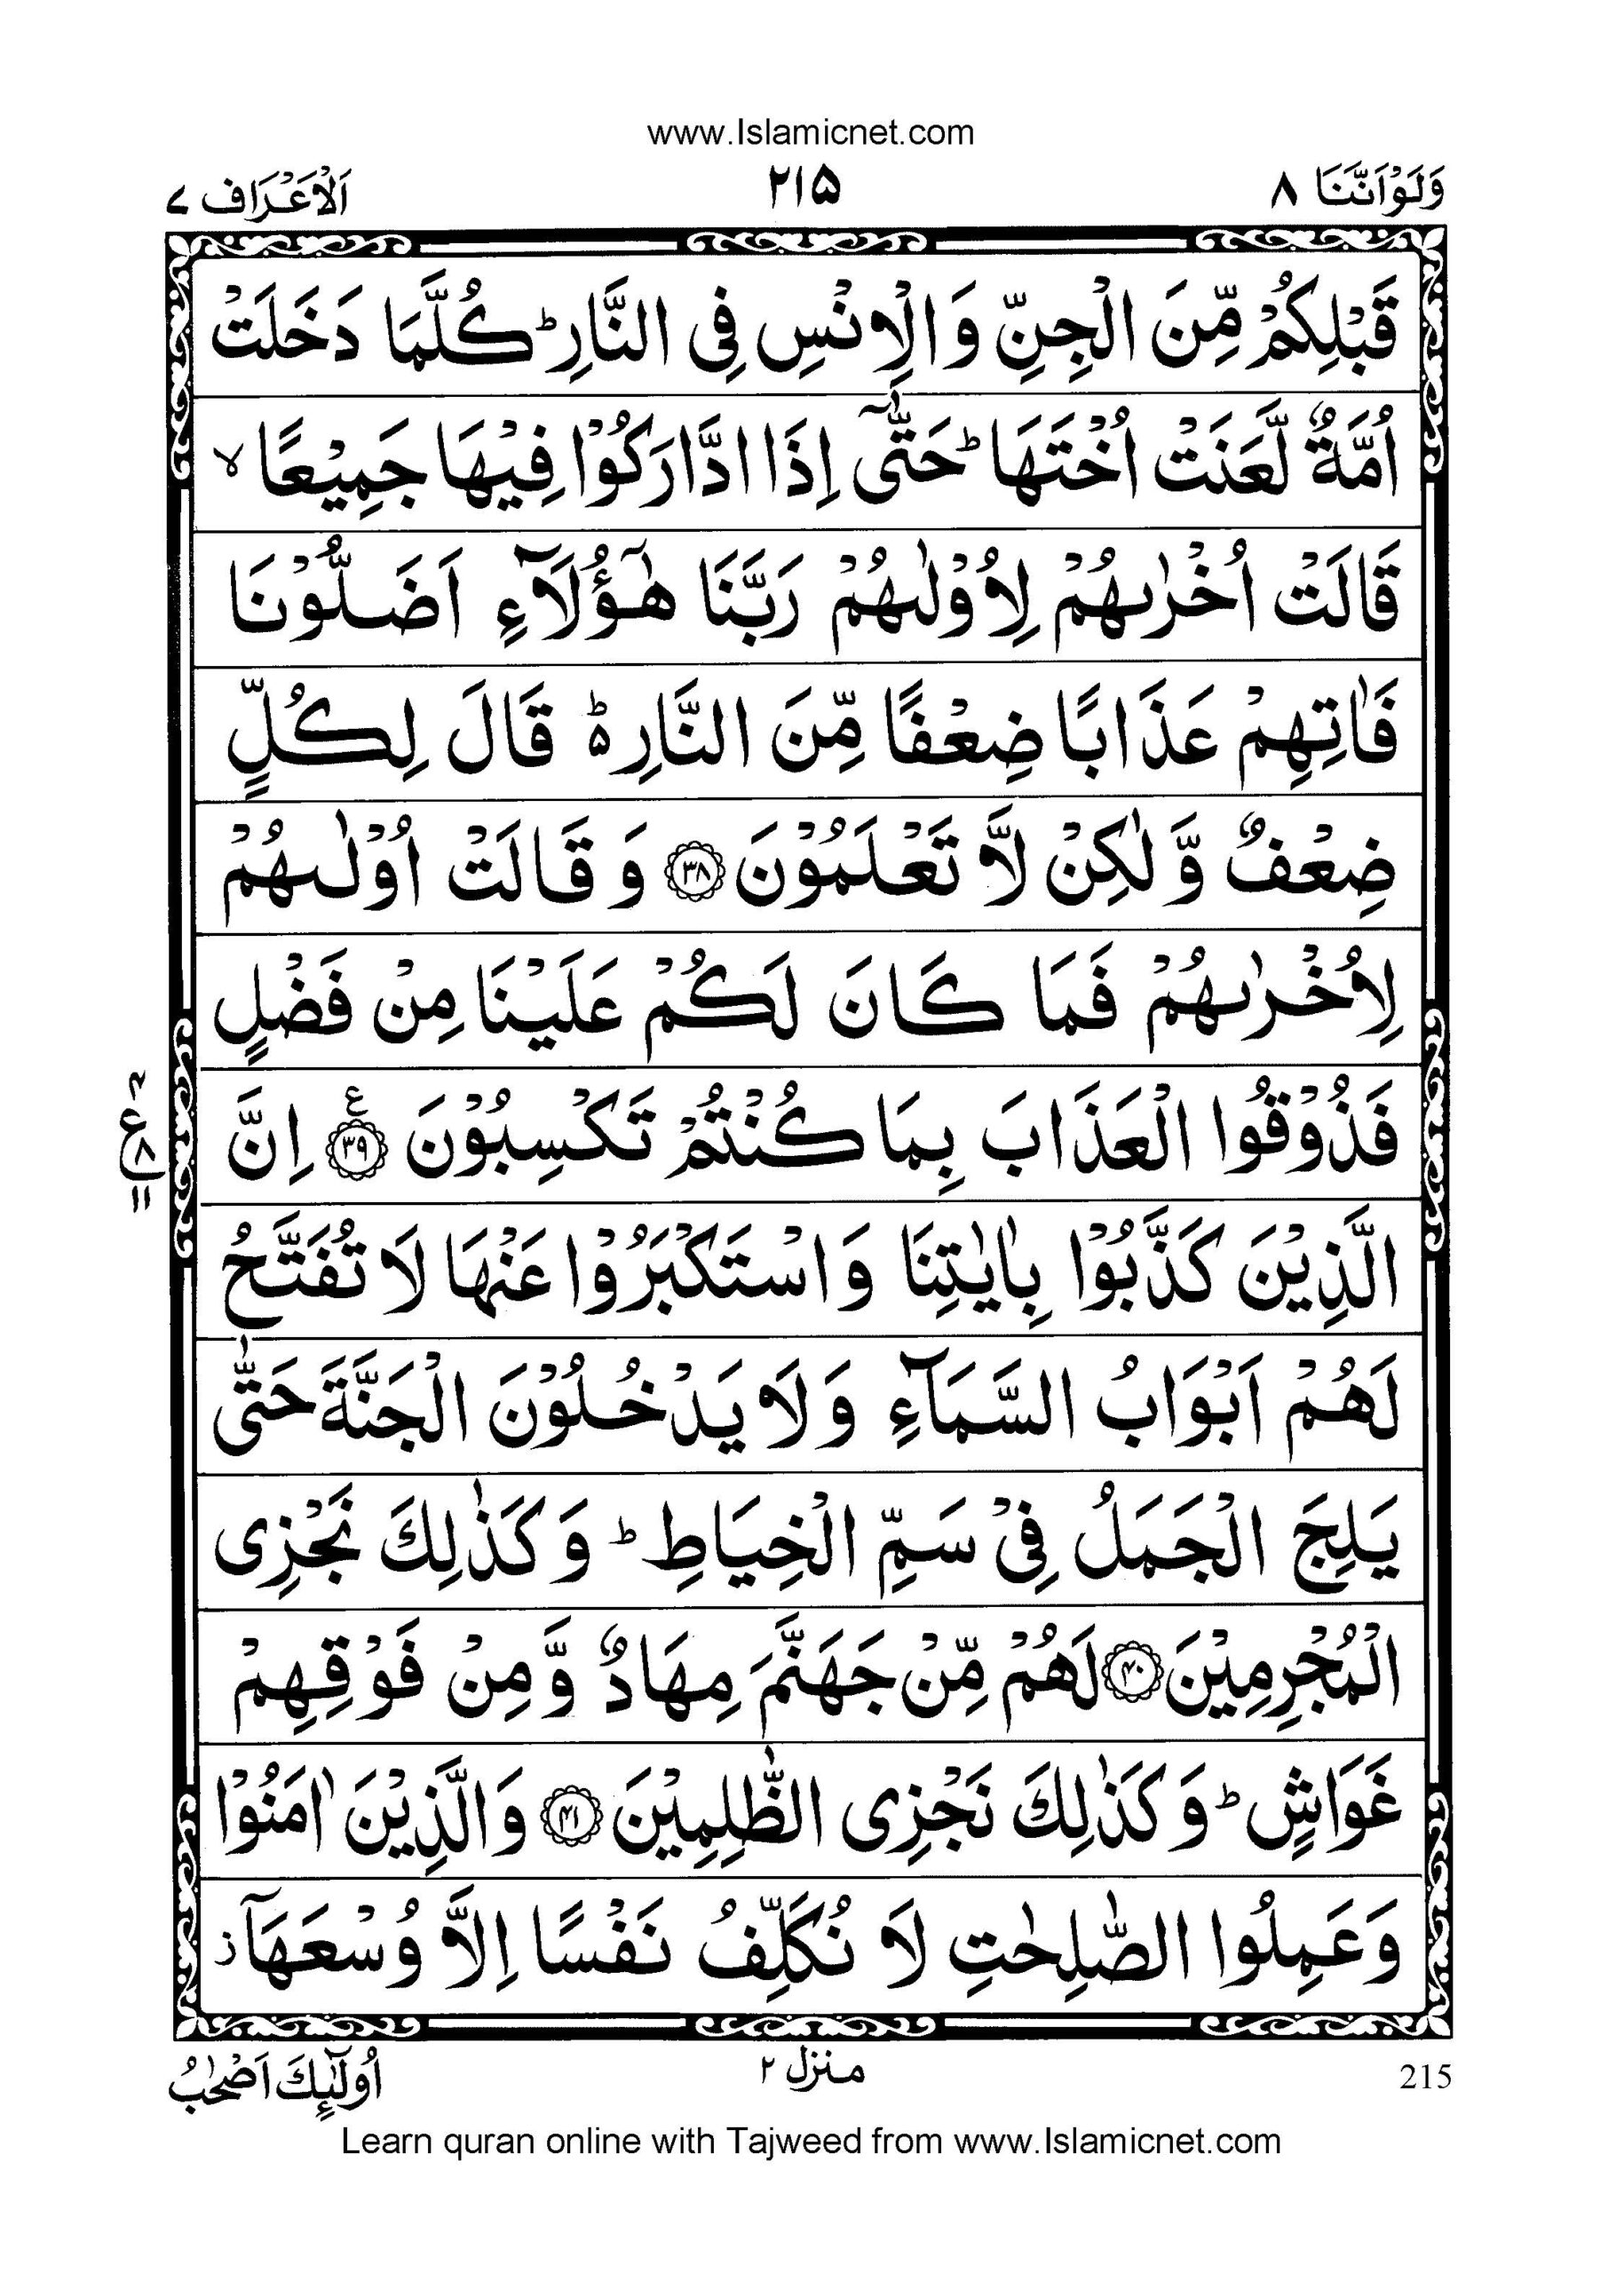 www.Islamicnet.com
وَلَوْاَنَّنَا ٨ ٢١٥ اَلْاَعْرَاف ٧
قَبْلِكُمْ مِّنَ الْجِنِّ وَالْاِنْسِ فِى النَّارِ ؕ كُلَّمَا دَخَلَتْ
اُمَّةٌ لَّعَنَتْ اُخْتَهَا ؕ حَتّٰۤى اِذَا ادَّارَكُوْا فِيْهَا جَمِيْعًا ۙ
قَالَتْ اُخْرٰىهُمْ لِاُوْلٰىهُمْ رَبَّنَا هٰۤؤُلَآءِ اَضَلُّوْنَا
فَاٰتِهِمْ عَذَابًا ضِعْفًا مِّنَ النَّارِ ۬ؕ قَالَ لِكُلٍّ
ضِعْفٌ وَّلٰكِنْ لَّا تَعْلَمُوْنَ ۝٣٨ وَ قَالَتْ اُوْلٰىهُمْ
لِاُخْرٰىهُمْ فَمَا كَانَ لَكُمْ عَلَيْنَا مِنْ فَضْلٍ
فَذُوْقُوا الْعَذَابَ بِمَا كُنْتُمْ تَكْسِبُوْنَ ۝٣٩ ع اِنَّ
ع ٤ ٨ ١١
الَّذِيْنَ كَذَّبُوْا بِاٰيٰتِنَا وَاسْتَكْبَرُوْا عَنْهَا لَا تُفَتَّحُ
لَهُمْ اَبْوَابُ السَّمَآءِ وَلَا يَدْخُلُوْنَ الْجَنَّةَ حَتّٰى
يَلِجَ الْجَمَلُ فِىْ سَمِّ الْخِيَاطِ ؕ وَكَذٰلِكَ نَجْزِى
الْمُجْرِمِيْنَ ۝٤٠ لَهُمْ مِّنْ جَهَنَّمَ مِهَادٌ وَّمِنْ فَوْقِهِمْ
غَوَاشٍ ؕ وَكَذٰلِكَ نَجْزِى الظّٰلِمِيْنَ ۝٤١ وَالَّذِيْنَ اٰمَنُوْا
وَعَمِلُوا الصّٰلِحٰتِ لَا نُكَلِّفُ نَفْسًا اِلَّا وُسْعَهَاۤ ز
215 منزل ٢ اُولٰٓئِكَ اَصْحٰبُ
Learn quran online with Tajweed from www.Islamicnet.com